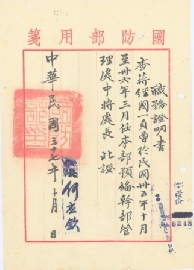 國防部用箋
職務證明書
查蔣經國一員曾於民國卅五年十月
至卅六年三月任本部預備幹部管
理處中將處長 此證
何應欽
中華民國三十七年十月 日